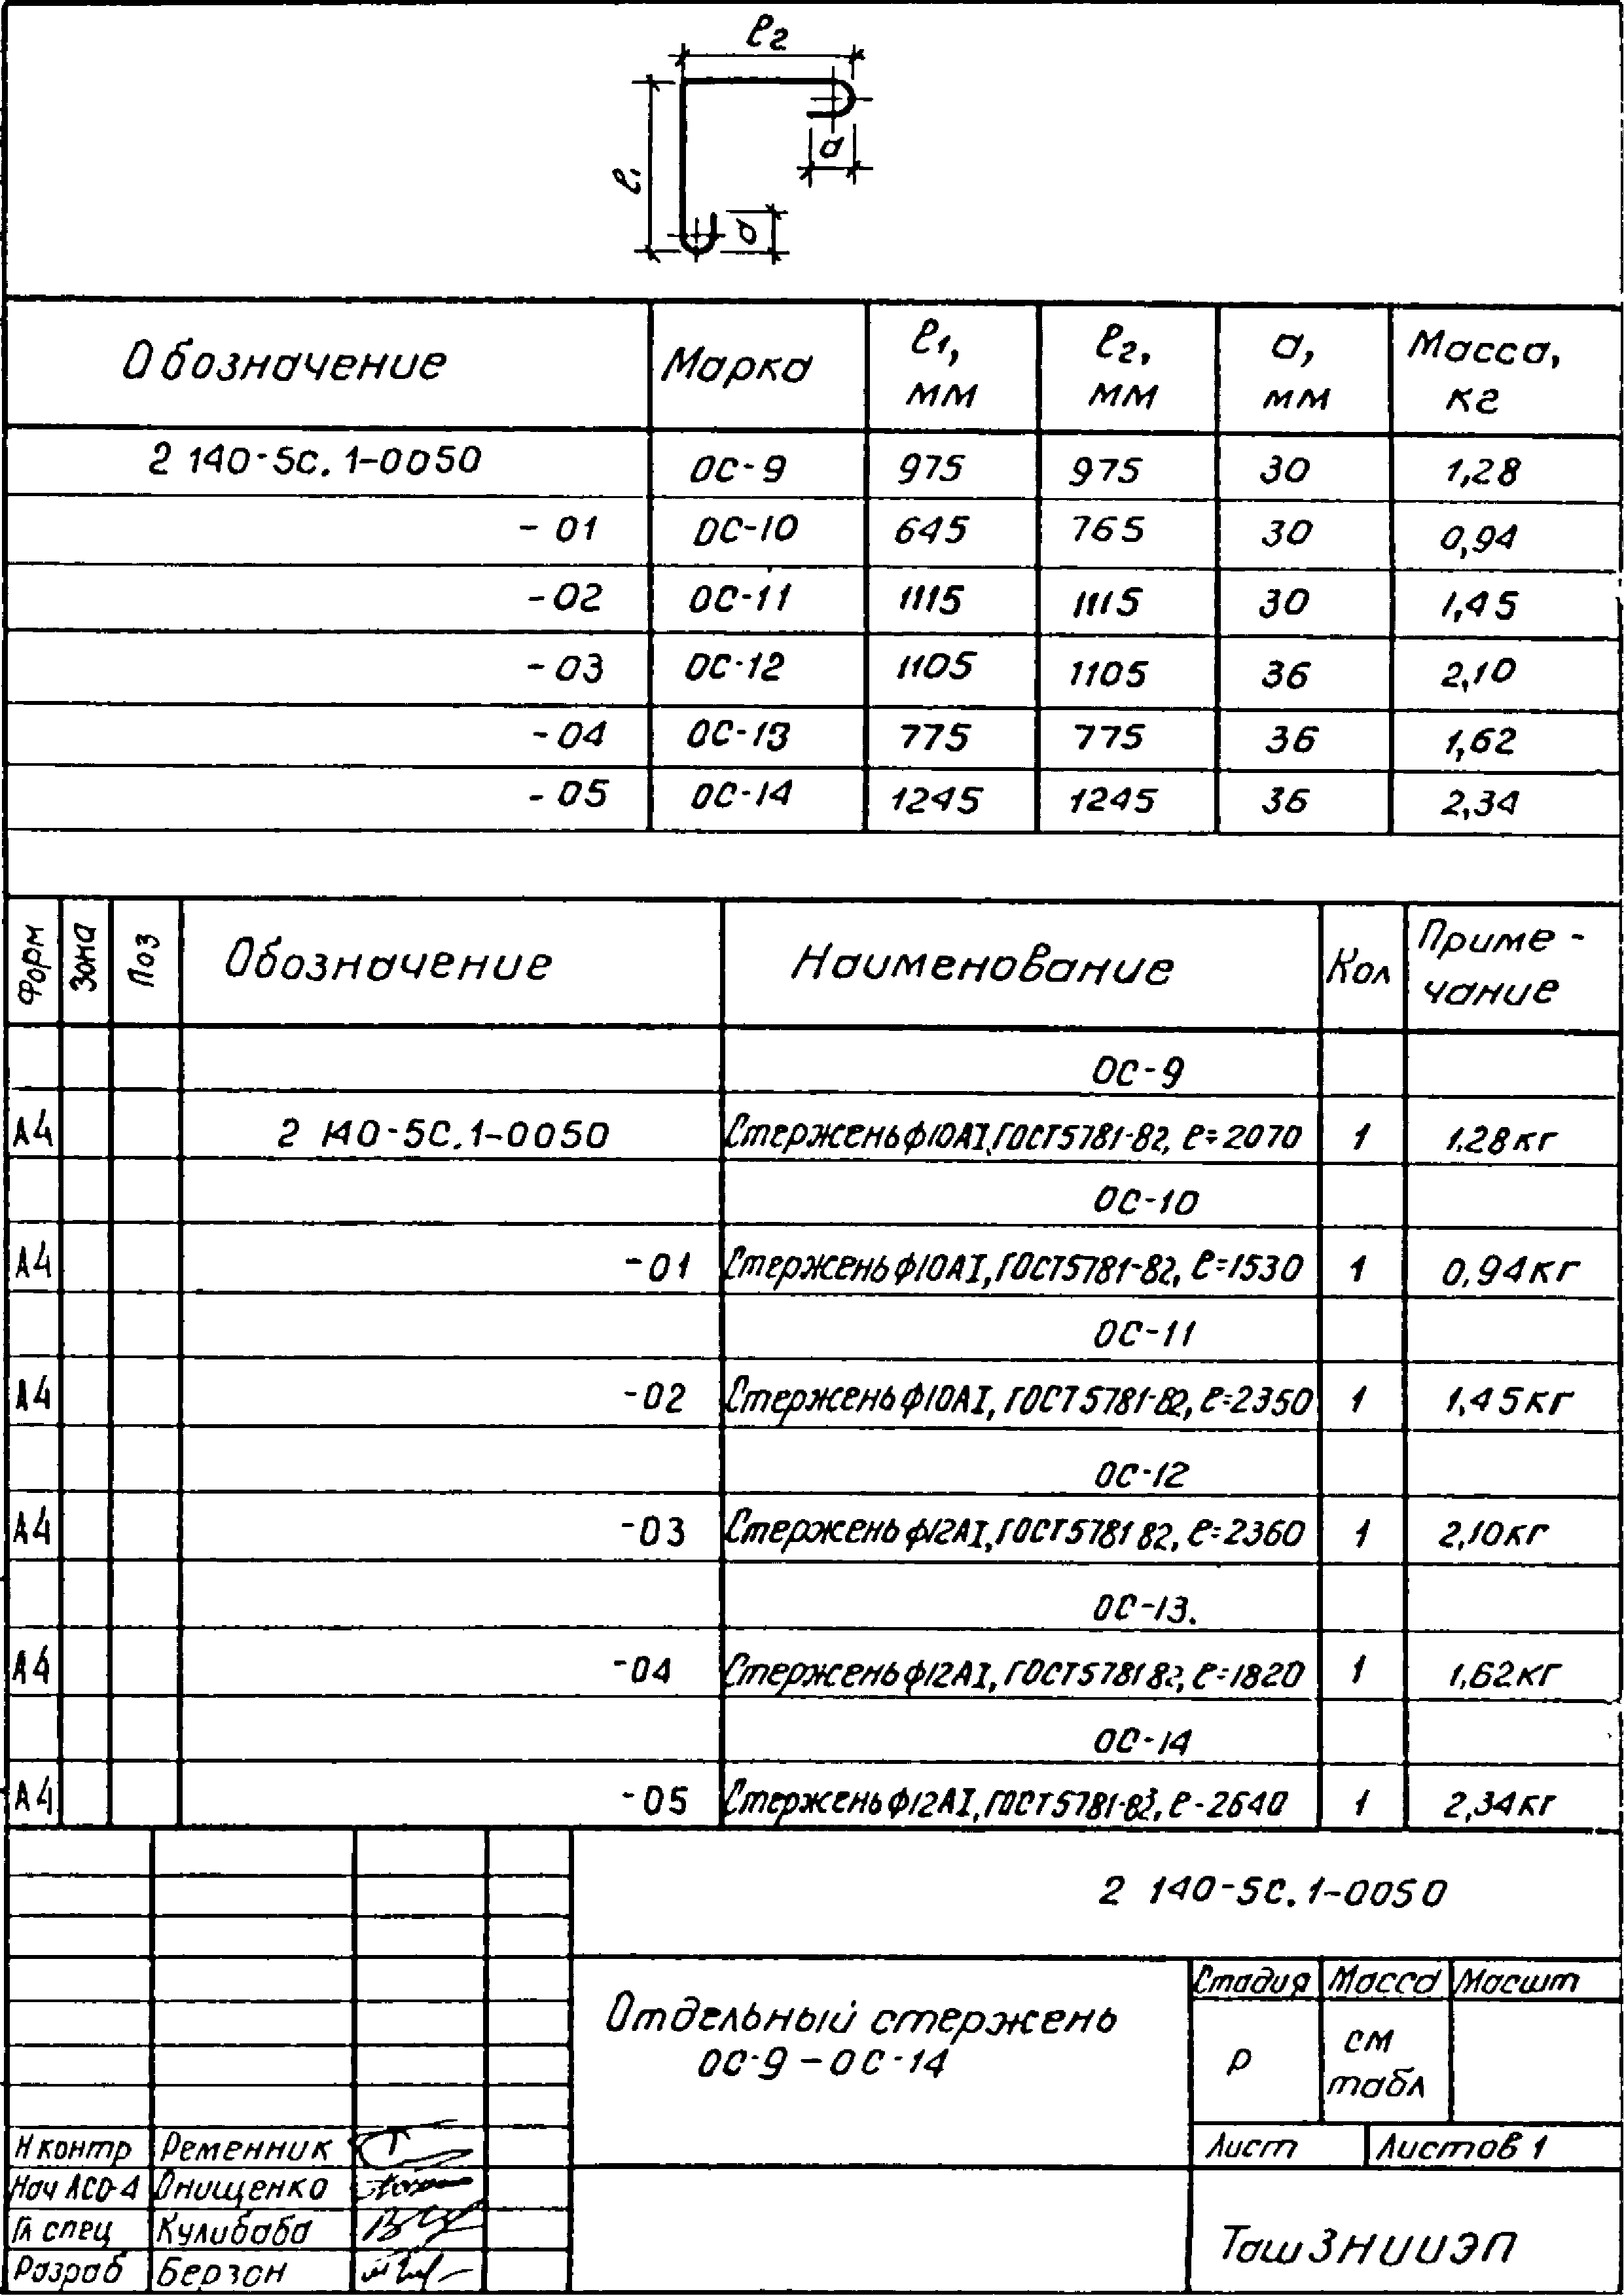 ℓ2
ℓ1
a
a
Обозначение Марка ℓ1, мм ℓ2, мм а, мм Масса, кг
2 140-5с.1-0050 ОС-9 975 975 30 1,28
-01 ОС-10 645 765 30 0,94
-02 ОС-11 1115 1115 30 1,45
-03 ОС-12 1105 1105 36 2,10
-04 ОС-13 775 775 36 1,62
-05 ОС-14 1245 1245 36 2,34
Форм Зона Поз Обозначение Наименование Кол Приме-
чание
ОС-9
А4 2 140-5С.1-0050 Стержень ф10АI, ГОСТ 5781-82, ℓ=2070 1 1.28кг
ОС-10
А4 -01 Стержень ф10АI, ГОСТ 5781-82, ℓ=1530 1 0,94кг
ОС-11
А4 -02 Стержень ф10АI, ГОСТ 5781-82, ℓ=2350 1 1,45кг
ОС-12
А4 -03 Стержень ф12АI, ГОСТ 5781 82, ℓ=2360 1 2,10кг
ОС-13.
А4 -04 Стержень ф12АI, ГОСТ 5781 82, ℓ=1820 1 1,62кг
ОС-14
А4 -05 Стержень ф12АI, ГОСТ 5781-82, ℓ-2640 1 2,34кг
2 140-5С.1-0050
Отдельный стержень
ОС-9-ОС-14
Стадия Масса Масшт
Р см
табл
Лист Листов 1
Н контр Ременник
Нач АСО-4 Онищенко
Гл спец Кулибаба
Разраб Берзон
ТашЗНИИЭП